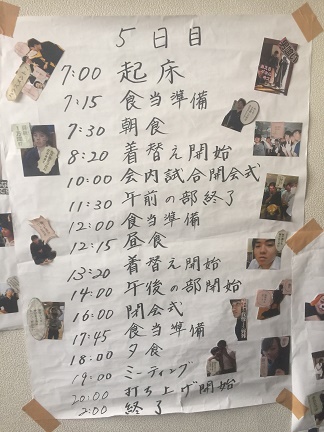 5日目
7:00 起床
7:15 食当準備
7:30 朝食
8:20 着替え開始
10:00 会内試合開会式
11:30 午前の部終了
12:00 食当準備
12:15 昼食
13:20 着替え開始
14:00 午後の部開始
16:00 閉会式
17:45 食当準備
18:00 夕食
19:00 ミーティング
20:00 打ち上げ開始
2:00 終了